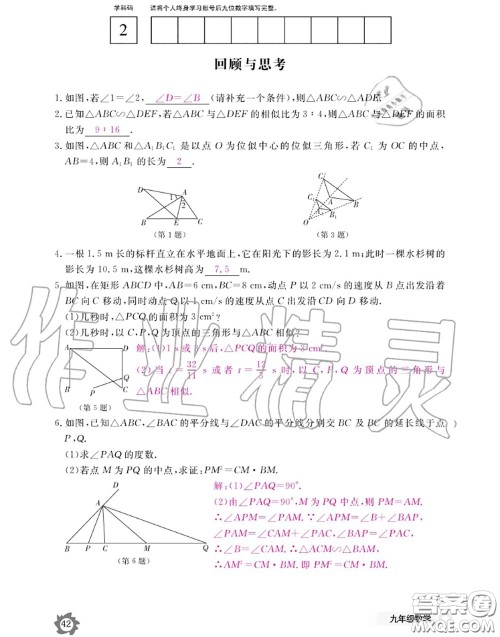 学科码 请将个人终身学习账号后九位数字填写完整。
2
回顾与思考
1. 如图,若∠1=∠2, ∠D=∠B (请补充一个条件),则△ABC∽△ADE.
2. 已知△ABC∽△DEF,若△ABC与△DEF的相似比为3∶4,则△ABC与△DEF的面积
比为 9∶16 .
3. 如图,△ABC和△A₁B₁C₁是以点O为位似中心的位似三角形,若C₁为OC的中点,
AB=4,则A₁B₁的长为 2 .
(第1题) (第3题)
4. 一根1.5 m长的标杆直立在水平地面上,它在阳光下的影长为2.1 m;此时一棵水杉树的
影长为10.5 m,这棵水杉树高为 7.5 m.
5. 如图,在矩形ABCD中,AB=6 cm,BC=8 cm,动点P以2 cm/s的速度从点B出发沿着
BC向C移动,同时动点Q以1 cm/s的速度从点C出发沿CD向D移动.
(1)几秒时,△PCQ的面积为3 cm²?
(2)几秒时,以C,P,Q为顶点的三角形与△ABC相似?
解:(1)1 s或3 s后,△PCQ的面积为3 cm².
(2)当t=32/11 s或者t=12/5 s时,以C,P,Q为顶点的三
(第5题)
6. 如图,已知△ABC,∠BAC的平分线与∠DAC的平分线分别交BC及BC的延长线于点
P,Q.
(1)求∠PAQ的度数.
(2)若点M为PQ的中点,求证:PM²=CM·BM.
解:(1)∠PAQ=90°.
(2)由∠PAQ=90°,M为PQ中点,则PM=AM.
∴∠APM=∠PAM. ∵∠APM=∠B+∠BAP,
∠PAM=∠CAM+∠PAC,∠BAP=∠PAC,
∴∠B=∠CAM. ∴△ACM∽△BAM,
∴AM²=CM·BM. 即PM²=CM·BM.
(第6题)
42
九年级数学
作业精灵
答案圈
MXQE.COM